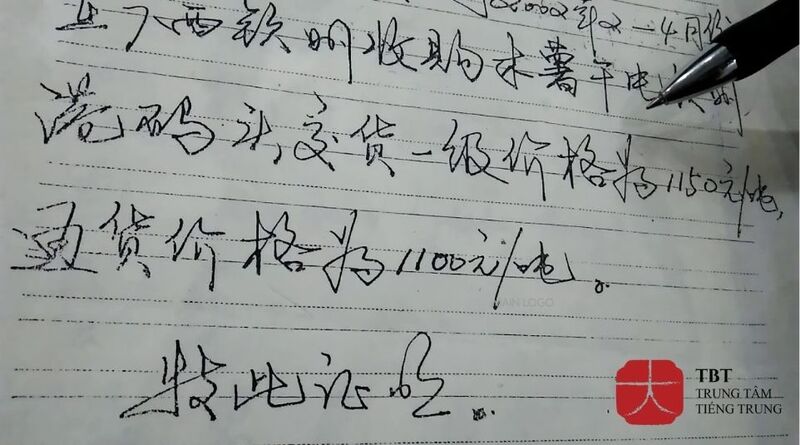 2002年2-4月份
广西钦州收购木薯干由钦州
港码头,交货一级价格为1150元/吨,
通货价格为1100元/吨。
特此证明.
MAIN LOGO
TBT
TRUNG TÂM
TIẾNG TRUNG